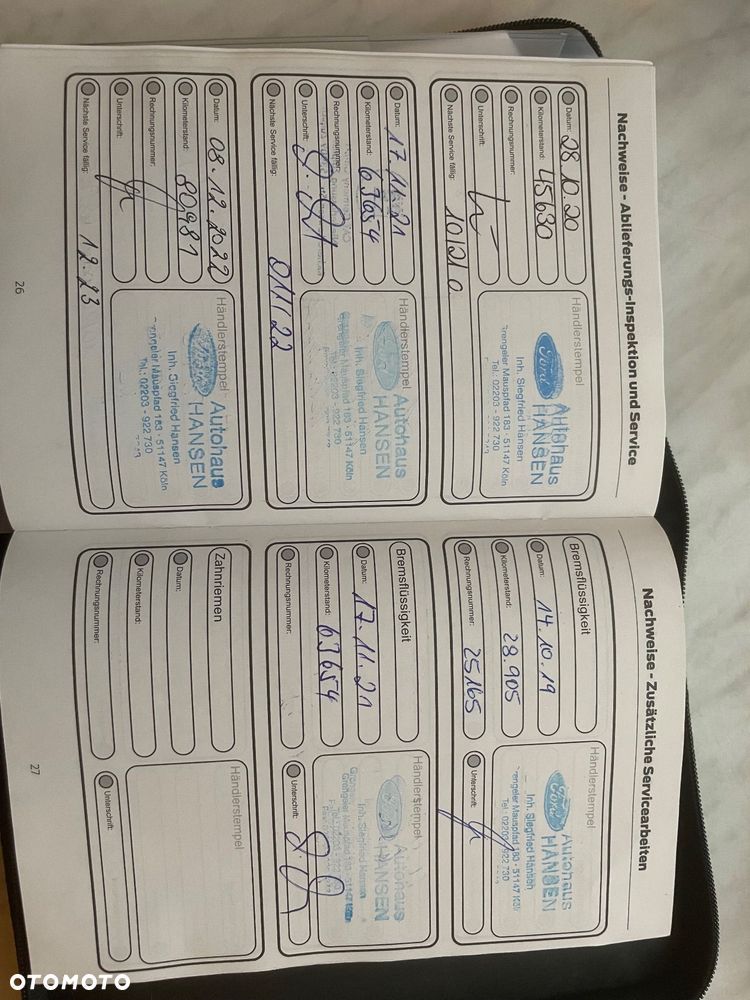 Nachweise - Ablieferungs-Inspektion und Service
Datum: 28.10.20
Kilometerstand: 45630
Rechnungsnummer:
Unterschrift:
Nächste Service fällig:
Händlerstempel
Autohaus
Ford HANSEN
Inh. Siegfried Hansen
Grengeler Mauspfad 183 - 51147 Köln
Tel. 02203 - 922 730
Datum: 17.11.21
Kilometerstand: 63654
Rechnungsnummer:
Unterschrift:
Nächste Service fällig: 011/22
Händlerstempel
Autohaus
HANSEN
Inh. Siegfried Hansen
Grengeler Mauspfad 183 - 51147 Köln
Tel. 02203 - 922 730
Datum: 08.12.2022
Kilometerstand: 80981
Rechnungsnummer:
Unterschrift:
Nächste Service fällig: 12.23
Händlerstempel
Autohaus
HANSEN
Inh. Siegfried Hansen
Grengeler Mauspfad 183 - 51147 Köln
Tel. 02203 - 922 730
26
Nachweise - Zusätzliche Servicearbeiten
Bremsflüssigkeit
Datum: 14.10.19
Kilometerstand: 28.905
Rechnungsnummer: 25165
Händlerstempel
Autohaus
Ford HANSEN
Inh. Siegfried Hansen
Grengeler Mauspfad 183 - 51147 Köln
Tel. 02203 - 922 730
Unterschrift:
Bremsflüssigkeit
Datum: 17.11.21
Kilometerstand: 63654
Rechnungsnummer:
Händlerstempel
Autohaus
HANSEN
Inh. Siegfried Hansen
Unterschrift:
Zahnriemen
Datum:
Kilometerstand:
Rechnungsnummer:
Händlerstempel
Unterschrift:
27
OTOMOTO